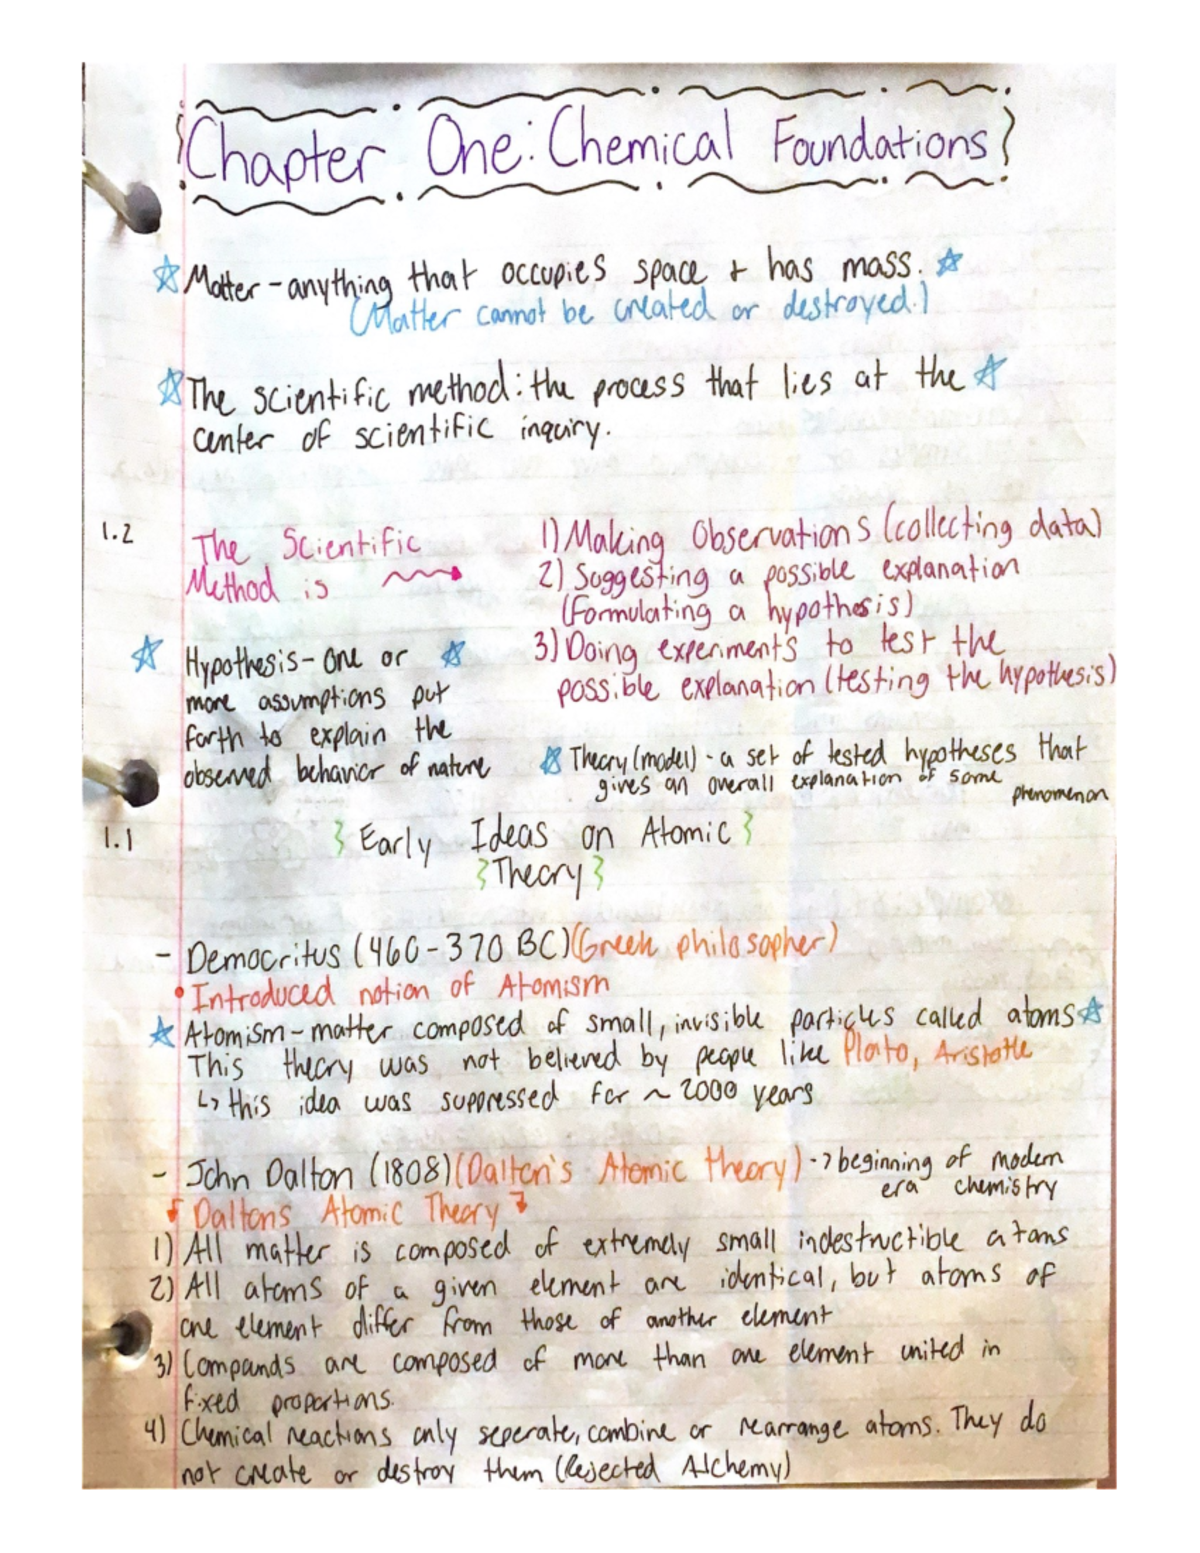 Chapter One: Chemical Foundations
Matter - anything that occupies space + has mass.
(Matter cannot be created or destroyed.)
The scientific method: the process that lies at the
center of scientific inquiry.
1.2
The Scientific
Method is
1) Making Observations (collecting data)
2) Suggesting a possible explanation
(Formulating a hypothesis)
3) Doing experiments to test the
possible explanation (testing the hypothesis)
Hypothesis - One or
more assumptions put
forth to explain the
observed behavior of nature
Theory (model) - a set of tested hypotheses that
gives an overall explanation of some
phenomenon
1.1
Early Ideas on Atomic
Theory
- Democritus (460-370 BC) (Greek philosopher)
• Introduced notion of Atomism
Atomism - matter composed of small, invisible particles called atoms
This theory was not believed by people like Plato, Aristotle
↳ this idea was suppressed for ~ 2000 years
- John Dalton (1808) (Dalton's Atomic theory) -> beginning of modern
era chemistry
Daltons Atomic Theory
1) All matter is composed of extremely small indestructible atoms
2) All atoms of a given element are identical, but atoms of
one element differ from those of another element
3) Compounds are composed of more than one element united in
fixed proportions.
4) Chemical reactions only seperate, combine or rearrange atoms. They do
not create or destroy them (Rejected Alchemy)